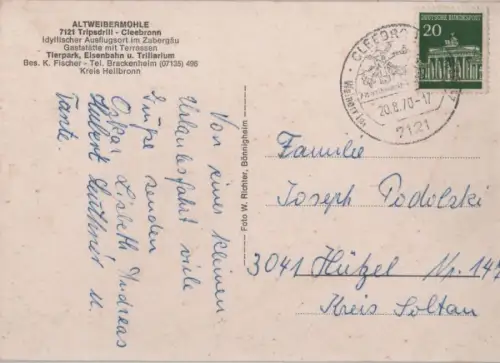 ALTWEIBERMÜHLE
7121 Tripsdrill - Cleebronn
Idyllischer Ausflugsort im Zabergäu
Gaststätte mit Terrassen
Tierpark, Eisenbahn u. Trillarium
Bes. K. Fischer - Tel. Brackenheim (07135) 496
Kreis Heilbronn
Von eines kleinen
Urlaubsfahrt viele
Grüße senden
Oskar, Lisbeth, Andreas
Hubert u.
Tante.
Foto W. Richter, Bönnigheim
CLEEBRONN
20.8.70-17
7121
DEUTSCHE BUNDESPOST
20
Familie
Joseph Podolzki
3041 Hützel Nr. 147
Kreis Soltau